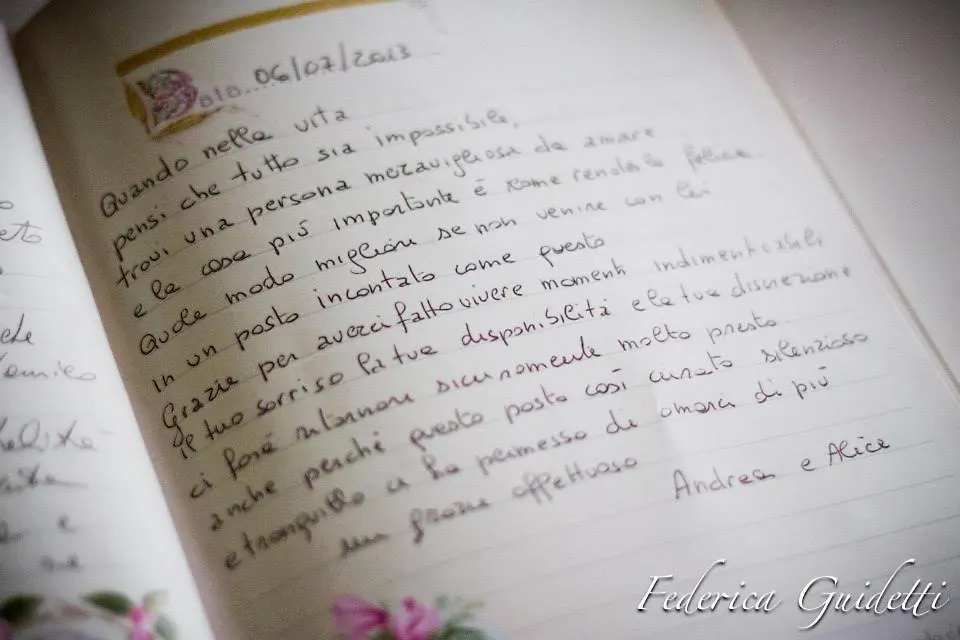 Data.... 06/07/2013
Quando nella vita
pensi che tutto sia impossibile,
trovi una persona meravigliosa da amare
e la cosa più importante è come renderla felice.
Quale modo migliore se non venire con lei
in un posto incantato come questo
Grazie per averci fatto vivere momenti indimenticabili
il tuo sorriso la tua disponibilità e la tua discrezione
ci farà ritornare sicuramente molto presto.
anche perché questo posto così curato silenzioso
e tranquillo ci ha permesso di amarci di più
un grazie affettuoso
Andrea e Alice
Federica Guidetti